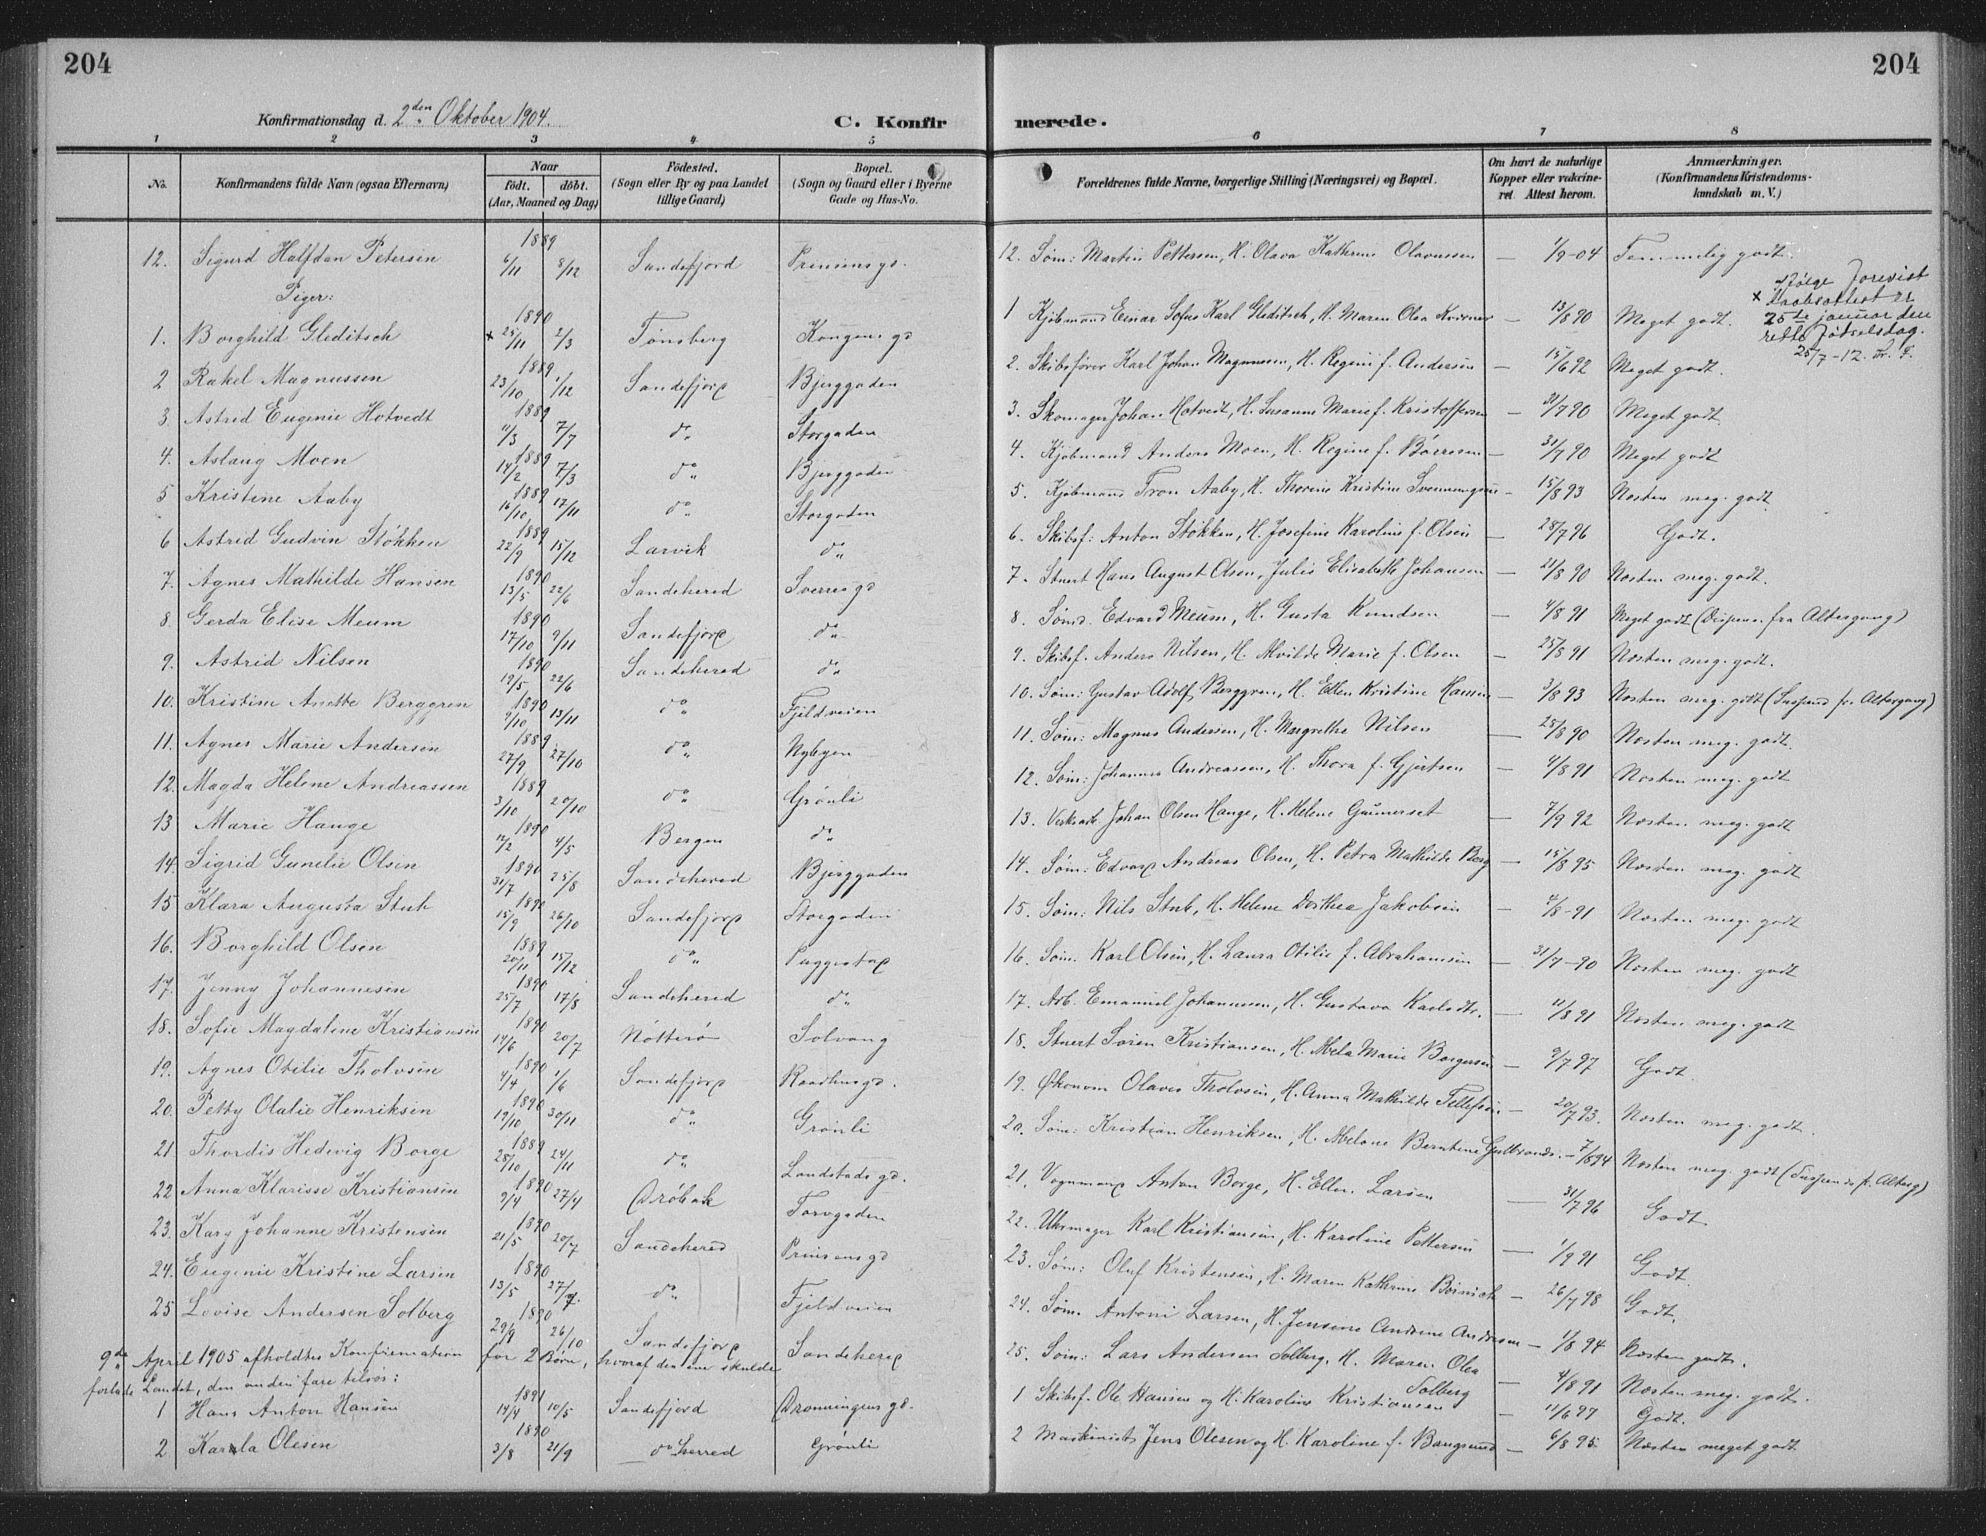 204
204
Konfirmationsdag d. 2den Oktober 1904.
C. Konfir
merede.
1 2 3 4 5 6 7 8
No.
Konfirmandens fulde Navn (ogsaa Efternavn)
Naar
født. døbt.
(Aar, Maaned og Dag)
Födested.
(Sogn eller By og paa Landet
tillige Gaard)
Bopæl.
(Sogn og Gaard eller i Byerne
Gade og Hus-No.
Forældrenes fulde Navne, borgerlige Stilling (Næringsvei) og Bopæl.
Om havt de naturlige
Kopper eller vakcine-
ret. Attest herom.
Anmærkninger.
(Konfirmandens Kristendoms-
kundskab m. V.)
12. Sigurd Halfdan Petersen 1889 6/11 8/12 Sandefjord Prinsensgd. 12. Søm: Martin Pettersen, H. Olava Kathrine Olavussen — 1/9-04 Temmelig godt.
Piger:
1. Borghild Gleditsch 1890 x 25/11 2/3 Tønsberg Kongensgd 1 Kjøbmand Einar Sofus Karl Gleditsch, H. Maren Olea 13/8 90 Meget godt.
x Ifølge
Daabsattest er
25de januar den
rette Fødselsdag.
25/7-12.
2 Rakel Magnussen 1889 23/10 1/12 Sandefjord Bjerggaden 2. Skibsfører Karl Johan Magnussen, H. Regine f. Andersen — 15/6 92 Meget godt.
3. Astrid Eugenie Hotvedt 1889 11/3 7/7 do Storgaden 3. Skomager Johan Hotvedt, H. Susanne Marie f. Kristoffersen — 31/7 90 Meget godt
4. Aslaug Moen 1889 14/2 7/3 do Bjerggaden 4. Kjøbmand Anders Moen, H. Regine f. Børresen — 31/7 90 Meget godt
5 Kristine Aaby 1889 16/10 17/11 do Storgaden 5. Kjøbmand Tron Aaby, H. Thorine Kristine Svenningsen — 15/8 93 Næsten meg. godt
6 Astrid Gudvin Støkken 1889 22/9 15/12 Larvik do 6. Skibsf: Anton Støkken, H. Josefine Karoline f. Olsen — 28/7 96 Godt.
7. Agnes Mathilde Hansen 1890 13/5 22/6 Sandeherred Sverresgd 7. Stuert Hans August Olsen, Julie Elisabeth Johansen — 21/8 90 Næsten meg. godt.
8. Gerda Elise Meum 1890 17/10 9/11 Sandefjord do 8. Sømd. Edvard Meum, H. Gusta Knudsen — 4/8 91 Meget godt (Dispens. fra Altergang)
9. Astrid Nilsen 1890 19/5 22/6 Sandeherred do 9. Skibsf. Anders Nilsen, H. Alvilde Marie f. Olsen — 25/8 91 Næsten meg. godt.
10. Kristine Anette Berggren 1890 9/10 13/11 do Fjeldveien 10. Søm: Gustav Adolf Berggren, H. Ellen Kristine Hansen — 3/8 93 Næsten meg. godt (Suspend fr. Altergang)
11. Agnes Marie Andersen 1889 27/9 27/10 do Nybyen 11. Søm: Magnus Andersen, H. Margrethe Nilsen — 25/8 90 Næsten meg. godt.
12. Magda Helene Andreassen 1889 3/10 20/10 do Grønli 12. Søm: Johannes Andreassen, H. Thora f. Gjertsen — 4/8 91 Næsten meg. godt
13 Marie Hauge 1890 12/2 4/5 Bergen do 13. Johan Olsen Hauge, H. Helene Gunnerset — 7/9 92 Næsten meg. godt
14. Sigrid Gunelie Olsen 1890 31/7 25/8 Sandeherred Bjerggaden 14. Søm: Edvard Andreas Olsen, H. Petra Mathilde Berg — 15/8 95 Næsten meg. godt
15 Klara Augusta Stub 1890 15/9 26/10 Sandefjord Storgaden 15. Søm: Nils Stub, H. Helene Dorthea Jakobsen — 4/8-91 Næsten meg. godt
16. Borghild Olsen 1889 20/11 15/12 do Puggestad 16. Søm. Karl Olsen, H. Laura Otilie f. Abrahamsen — 31/7-90 Næsten meg. godt
17. Jenny Johannesen 1890 25/7 17/8 Sandeherred do 17. Arb. Emanuel Johannesen, H. Gustava Karlsdtr. — 11/8 91 Næsten meg. godt
18. Sofie Magdaline Kristiansen 1890 14/6 20/7 Nötterö Solvang 18. Stuert Sören Kristiansen, H. Marie Borgersen — 9/7 97 Godt.
19. Agnes Otilie Tholvsen 1890 4/4 1/6 Sandefjord Raadhusgd. 19. Økonom Olaves Tholvsen, H. Anna Mathilde Tellefsen — 20/7 93. Næsten meg. godt.
20. Petty Olalie Henriksen 1890 19/10 30/11 do Grønli 20. Søm: Kristian Henriksen, H. Berntine Gulbrands. — 7/8 94 Næsten meg. godt (Suspends f. Alterg)
21. Thordis Hedevig Borge 1889 28/10 24/11 do Landstadsgd. 21. Vognmand Anton Borge, H. Ellen Larsen — 31/7 96 Godt
22 Anna Klarisse Kristiansen 1890 9/4 27/4 Drøbak Torvgaden 22. Uhrmager Karl Kristiansen, H. Karoline Pettersen — 1/9 91 Godt.
23. Kary Johanne Kristensen 1890 21/5 20/7 Sandeherred Prinsensgd 23. Søm: Oluf Kristensen, H. Maren Kathrine — 26/7 98 Godt.
24. Eugenie Kristine Larsen 1890 13/5 27/7 do Fjeldveien 24. Søm. Antoni Larsen, H. Jensine Andrine Andersen — 1/8 94 Næsten godt.
25 Lovise Andersen Solberg 1890 29/9 26/10 Sandefjord Sandeherred 25. Søm: Lars Andersen Solberg, H. Maren Olea Solberg — 4/8 91 Næsten meg. godt.
9de April 1905 afholdtes Konfirmation for 2 Børn, hvoraf den ene skulde
forlade Landet, den anden fare tilsøs:
1 Hans Anton Hansen 1891 14/4 10/5 Sandefjord Dronningensgd. 1 Skibsf. Ole Hansen og H. Karoline Kristiansen — 11/6 97 Godt.
2 Karla Olesen 1890 3/8 21/9 do herred Grønli 2 Maskinist Jens Olesen og H. Karoline f. — 6/8 95 Næsten meget godt